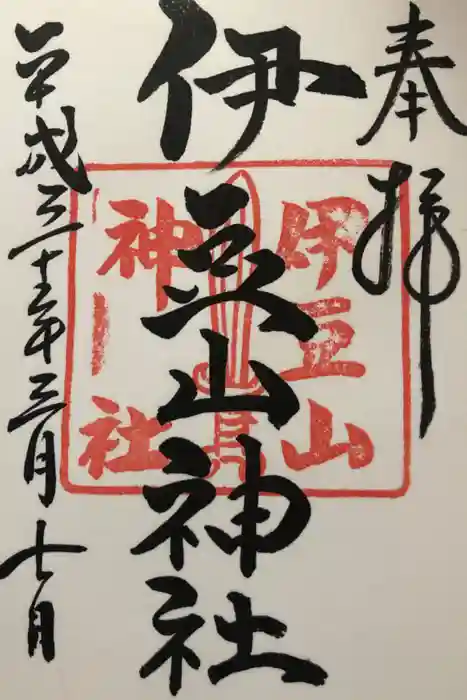 奉拝
伊豆山神社
平成三十一年三月七日
伊豆山
神社